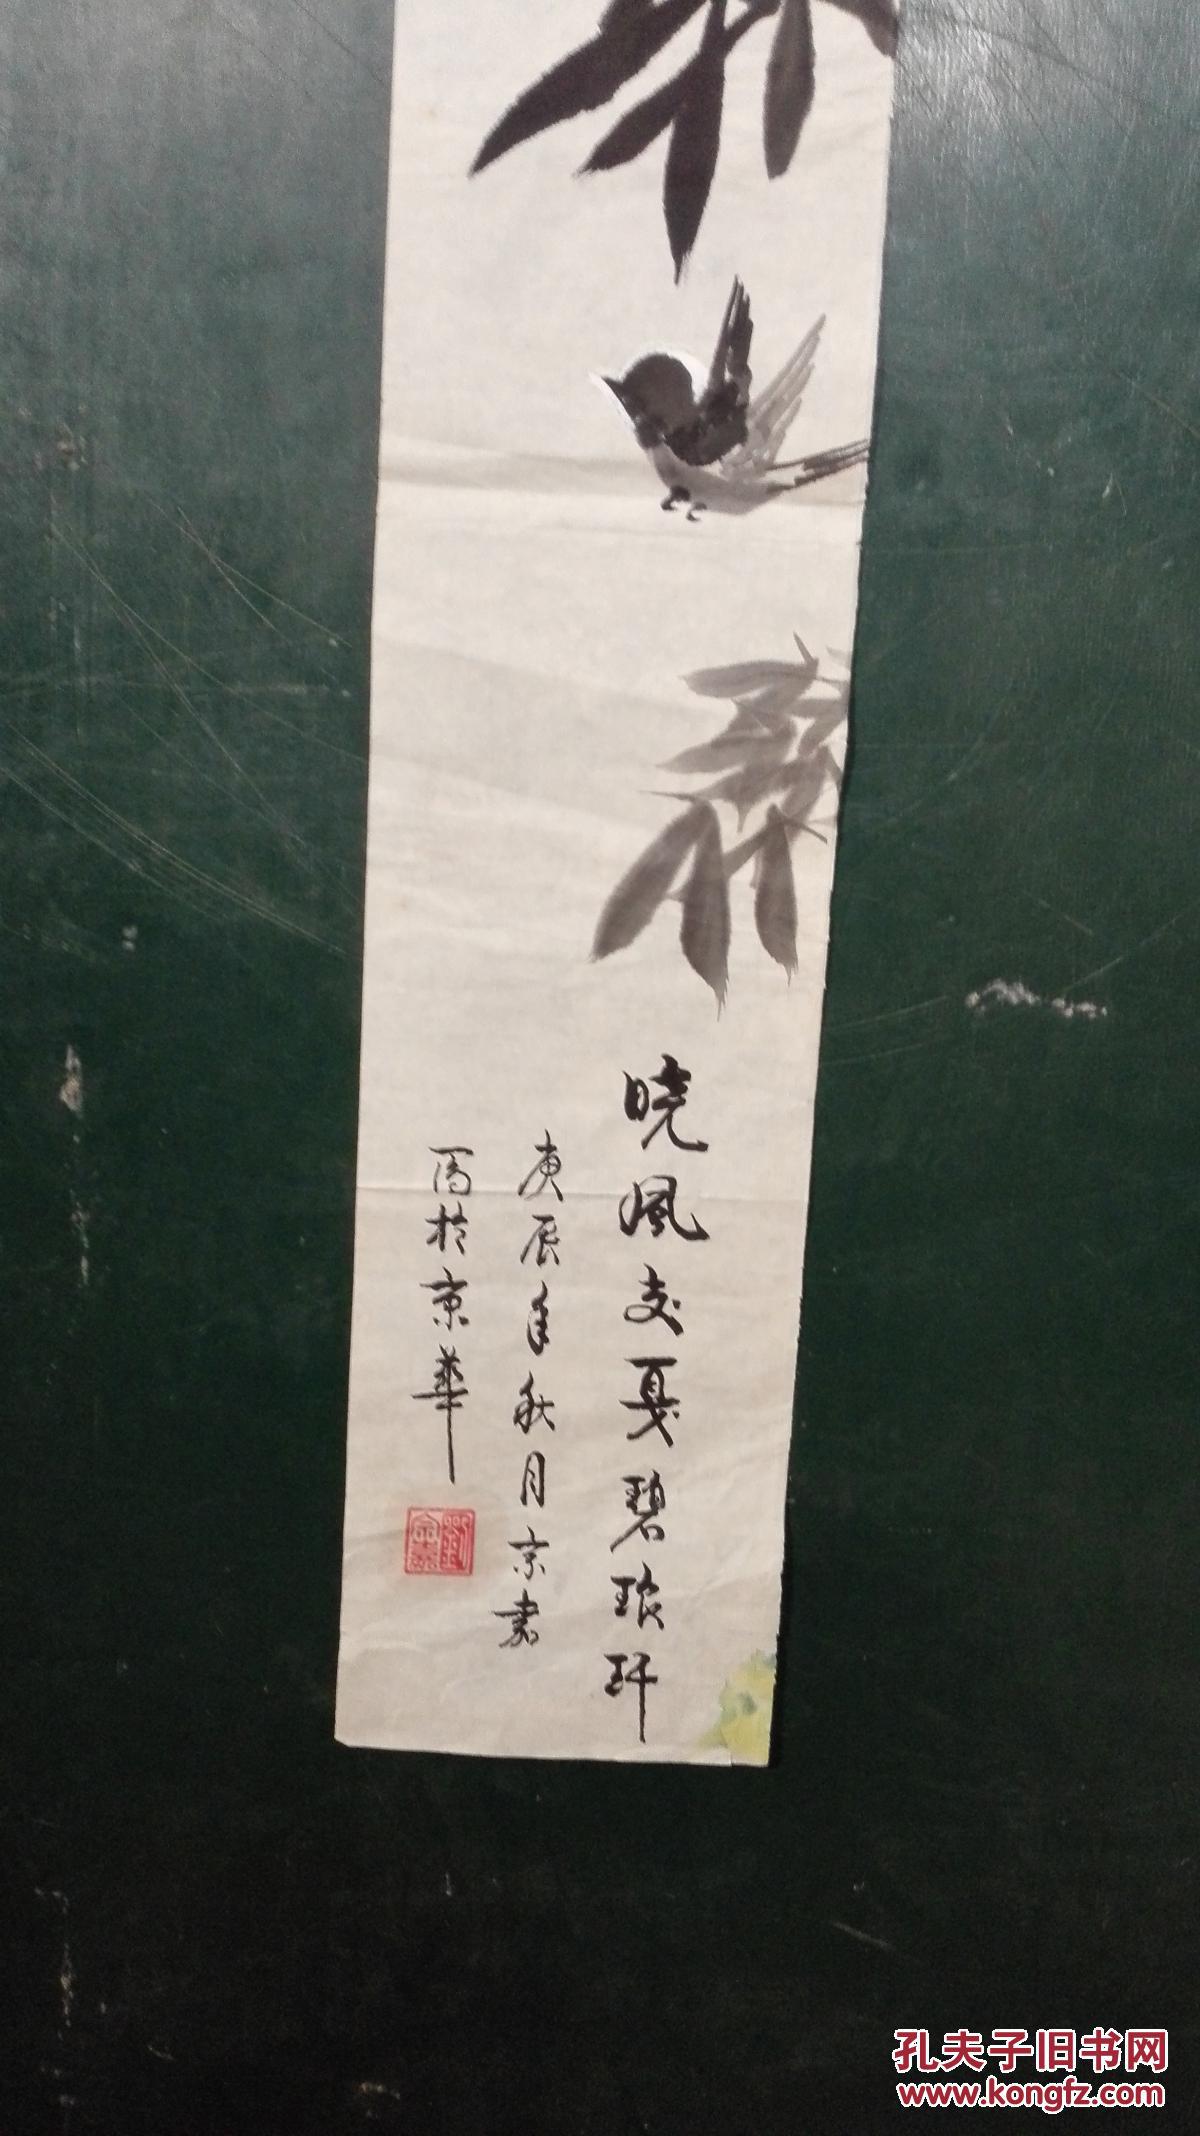 晓風交戛碧琅玕
庚辰年秋月京書
寫於京華
孔夫子旧书网
www.kongfz.com